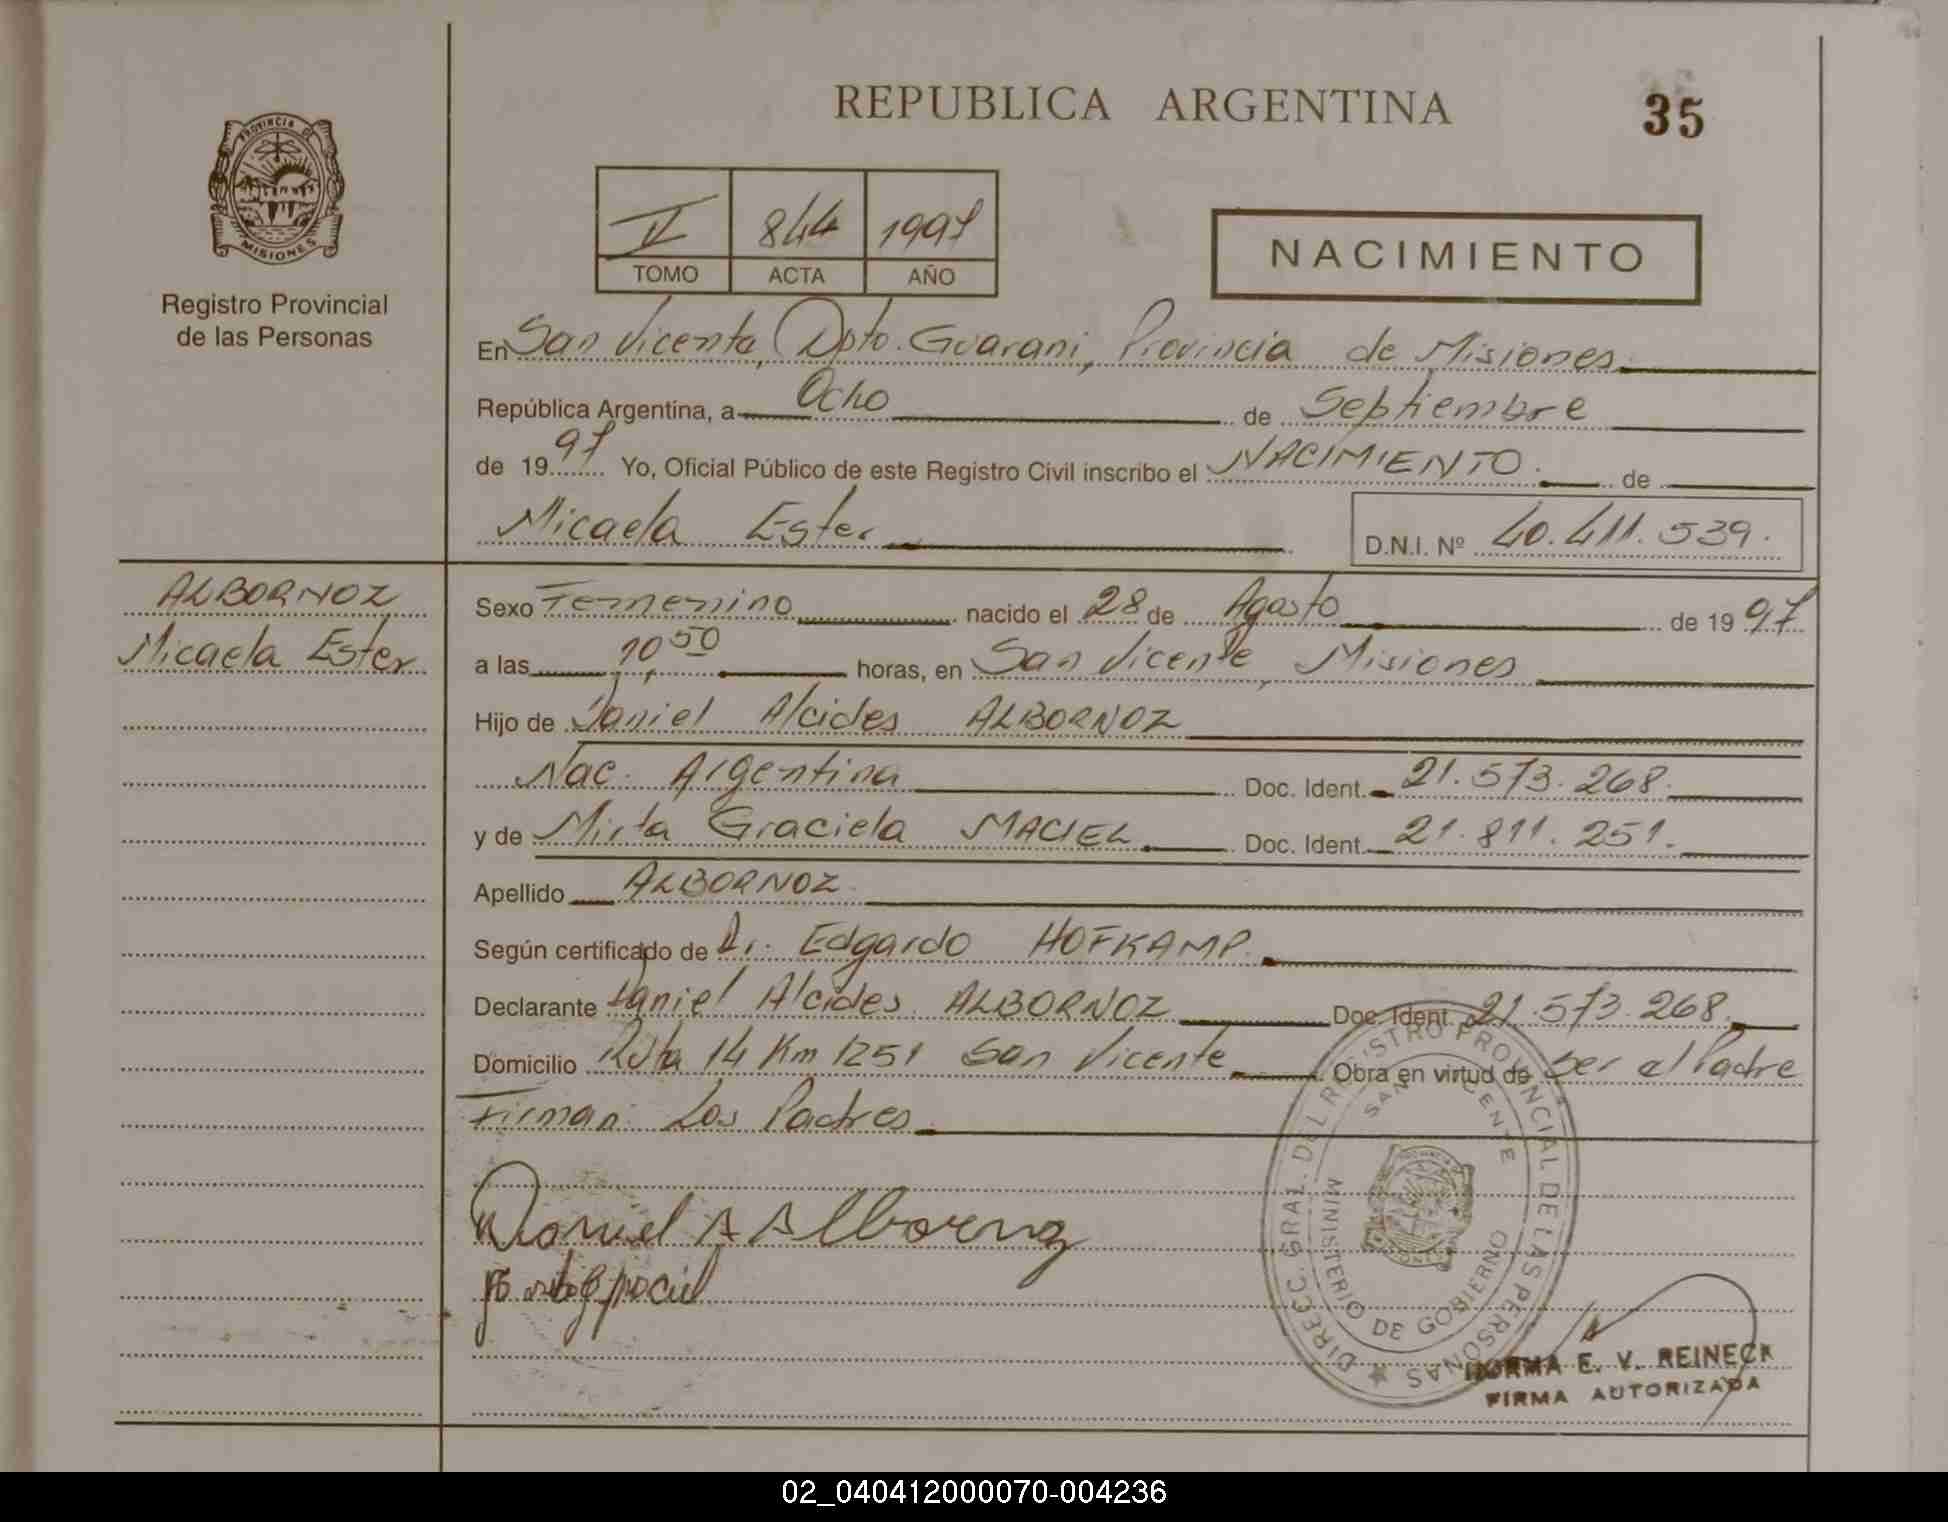 REPUBLICA ARGENTINA
35
PROVINCIA DE
MISIONES
Registro Provincial
de las Personas
V 844 1997
TOMO ACTA AÑO
NACIMIENTO
En San Vicente, Dpto. Guarani, Provincia de Misiones
República Argentina, a Ocho de Septiembre
de 1997 Yo, Oficial Público de este Registro Civil inscribo el NACIMIENTO. de
Micaela Ester D.N.I. Nº 40.411.539.
ALBORNOZ
Micaela Ester
Sexo Femenino nacido el 28 de Agosto de 1997
a las 10,50 horas, en San Vicente, Misiones
Hijo de Daniel Alcides ALBORNOZ
Nac. Argentina Doc. Ident. 21.573.268.
y de Mirta Graciela MACIEL Doc. Ident. 21.811.251.
Apellido ALBORNOZ
Según certificado de Dr. Edgardo HOFKAMP.
Declarante Daniel Alcides ALBORNOZ Doc. Ident. 21.573.268.
Domicilio Ruta 14 Km 1251 San Vicente Obra en virtud de Ser el Padre
Firman: Los Padres
Daniel A Albornoz
DIRECC. GRAL. DEL REGISTRO PROVINCIAL DE LAS PERSONAS
SAN VICENTE
MINISTERIO DE GOBIERNO
NORMA E. V. REINECK
FIRMA AUTORIZADA
02_040412000070-004236